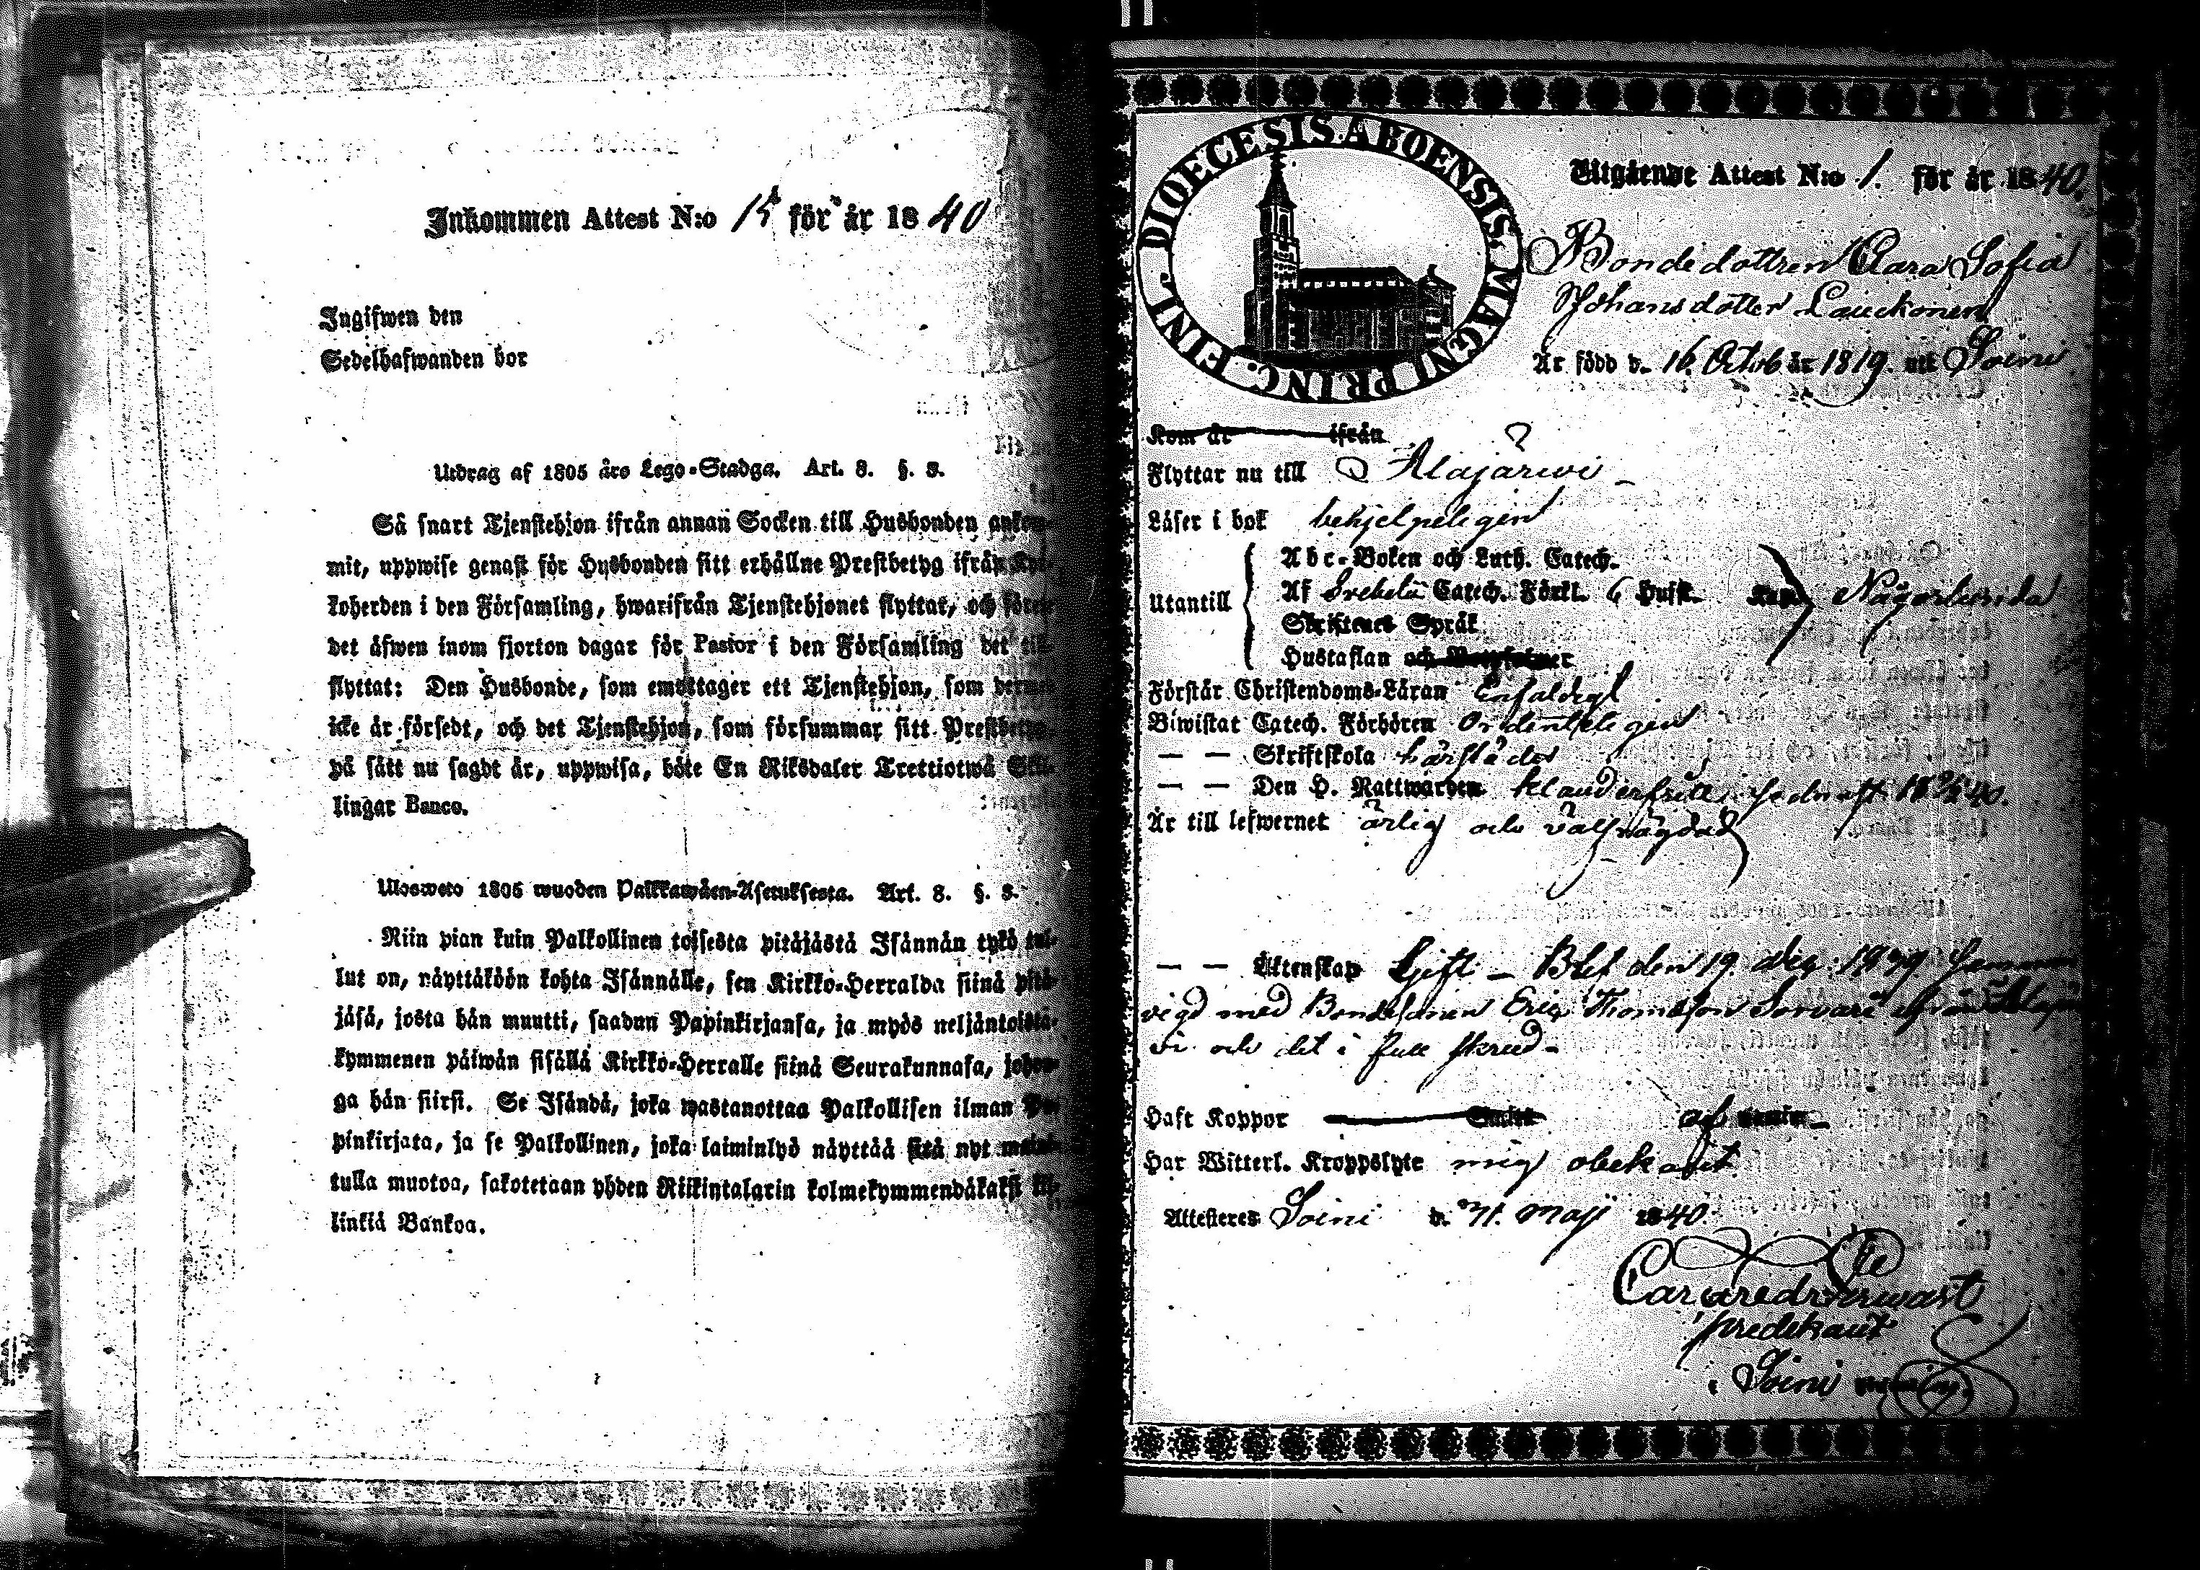 Inkommen Attest N:o 15 för år 1840
Ingifwen den
Sedelhafwanden bor
Utdrag af 1805 års Lego-Stadga. Art. 8. §. 3.
Så snart Tjenstehjon ifrån annan Socken till Husbonden ankom-
mit, uppwise genast för Husbonden sitt erhållne Prestbetyg ifrån Kyr-
koherden i den Församling, hwarifrån Tjenstehjonet flyttat, och förete
det äfwen inom fjorton dagar för Pastor i den Församling det till-
flyttat: Den Husbonde, som emottager ett Tjenstehjon, som dermed
icke är försedt, och det Tjenstehjon, som försummar sitt Prestbetyg
på sätt nu sagdt är, uppwisa, böte En Riksdaler Trettiotwå Skil-
lingar Banco.
Ulosweto 1805 wuoden Palkkawäen-Asetuksesta. Art. 8. §. 3.
Niin pian kuin Palkollinen toisesta pitäjästä Isännän tykö tul-
lut on, näyttäköön kohta Isännälle, sen Kirkko-Herralda siinä pitä-
jäsä, josta hän muutti, saadun Papinkirjansa, ja myös neljäntoista-
kymmenen päiwän sisällä Kirkko-Herralle siinä Seurakunnasa, johon-
ga hän siirsi. Se Isändä, joka wastanottaa Palkollisen ilman Pa-
pinkirjata, ja se Palkollinen, joka laiminlyö näyttää sitä nyt maini-
tulla muotoa, sakotetaan yhden Riikintalarin kolmekymmendäkaksi kil-
linkiä Bankoa.
DIOECESIS ABOENSIS MAGNI PRINC. FINL.
Utgående Attest N:o 1. för år 1840.
Bondedottren Clara Sofia
Johansdotter Lauckonen
Är född d. 16 Octob år 1819. uti Soini
Kom år ifrån
Flyttar nu till Alajärwi
Läser i bok behjelpeligen
Abc-Boken och Luth. Catech.
Utantill Af Svebelii Catech. Förkl. 6 Hufst. Någorlunda
Skriftenes Språk
Hustaflan och
Förstår Christendoms-Läran Enfaldigt
Biwistat Catech. Förhören Ordenteligen
— — Skriftskola härstädes
— — Den H. Nattwarden klanderfritt
Är till lefwernet ärlig och välfrägdad
— — Äktenskap Gift — Blef den 19 Dec. 1839 samman
vigd med Bondesonen Eric Thomasson Sorvari ifrån Alajär
vi och det i full skrud
Haft Koppor af
Har Witterl. Kroppslyte mig obekant
Attesteras Soini d. 31. Maji 1840.
predikant
i Soini